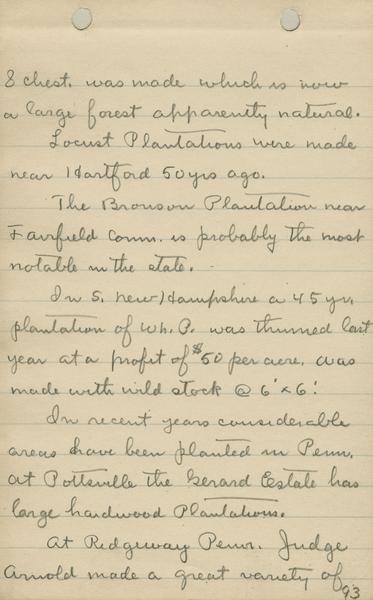 & chest. was made which is now
a large forest apparently natural.
Locust Plantations were made
near Hartford 50 yrs ago.
The Bronson Plantation near
Fairfield Conn. is probably the most
notable in the state.
In S. New Hampshire a 45 yr.
plantation of Wh. P. was thinned last
year at a profit of $50 per acre. Was
made with wild stock @ 6' x 6'.
In recent years considerable
areas have been planted in Penn.
at Pottsville the Gerard Eestate has
large hardwood Plantations.
At Ridgeway Penn. Judge
Arnold made a great variety of
93